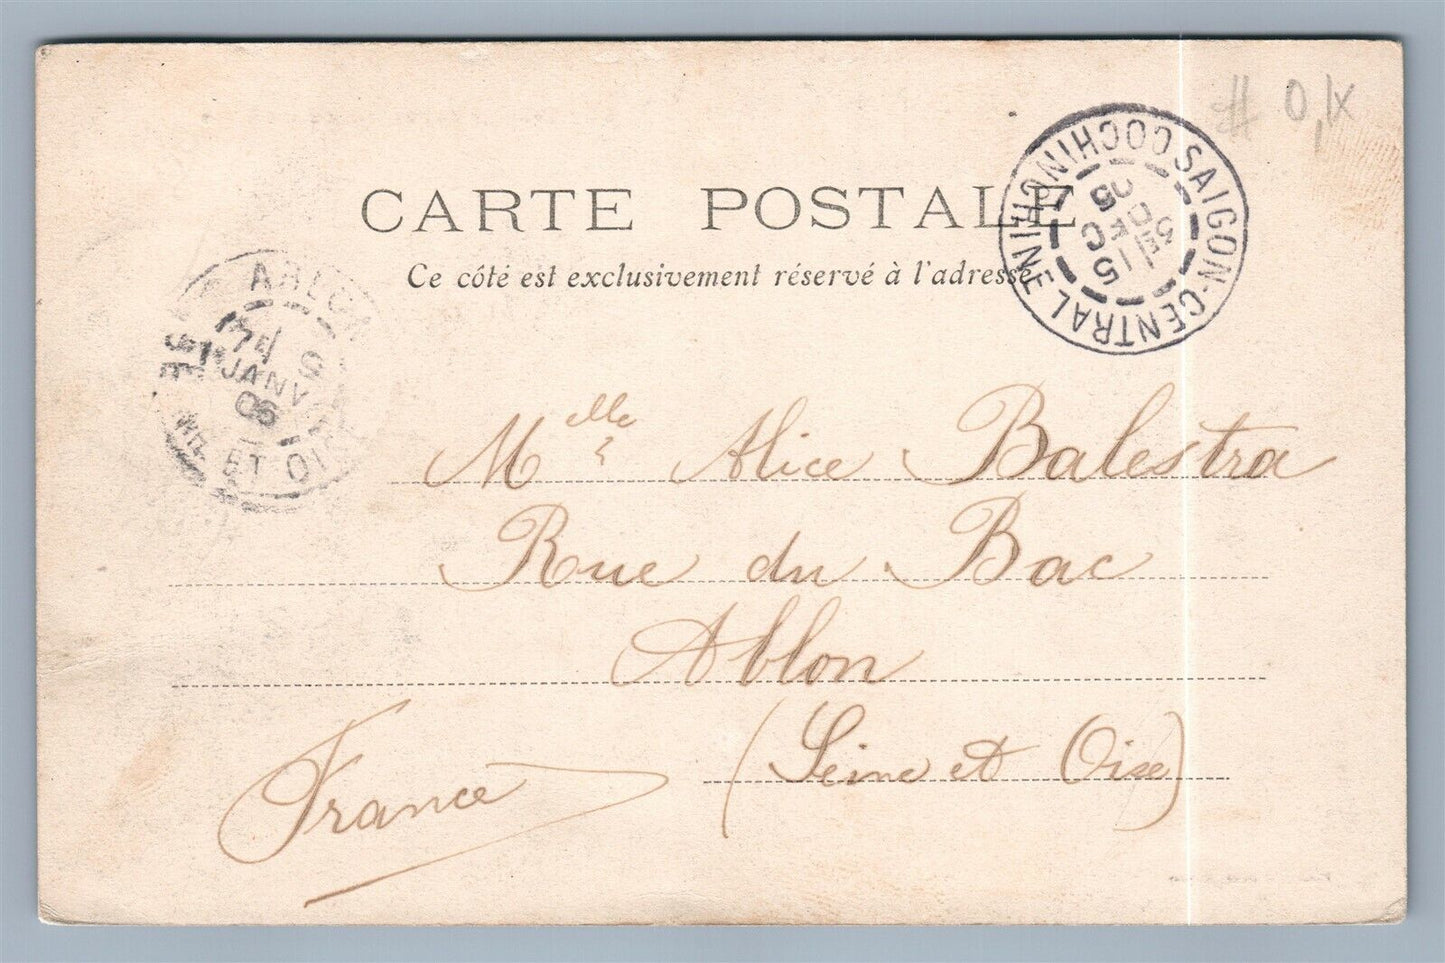 # 0,1x
CARTE POSTALE
Ce côté est exclusivement réservé à l'adresse
SAIGON-CENTRAL COCHINCHINE
15
DEC
05
ABLON
7
JANV
06
ET OISE
Mlle Alice Balestra
Rue du Bac
Ablon
(Seine et Oise)
France